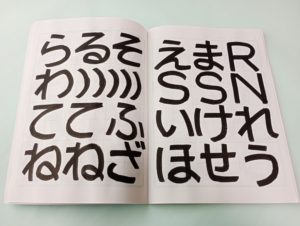 らるそ
わ)))))
ててふ
ねねざ
えまR
SSN
いけれ
ほせう